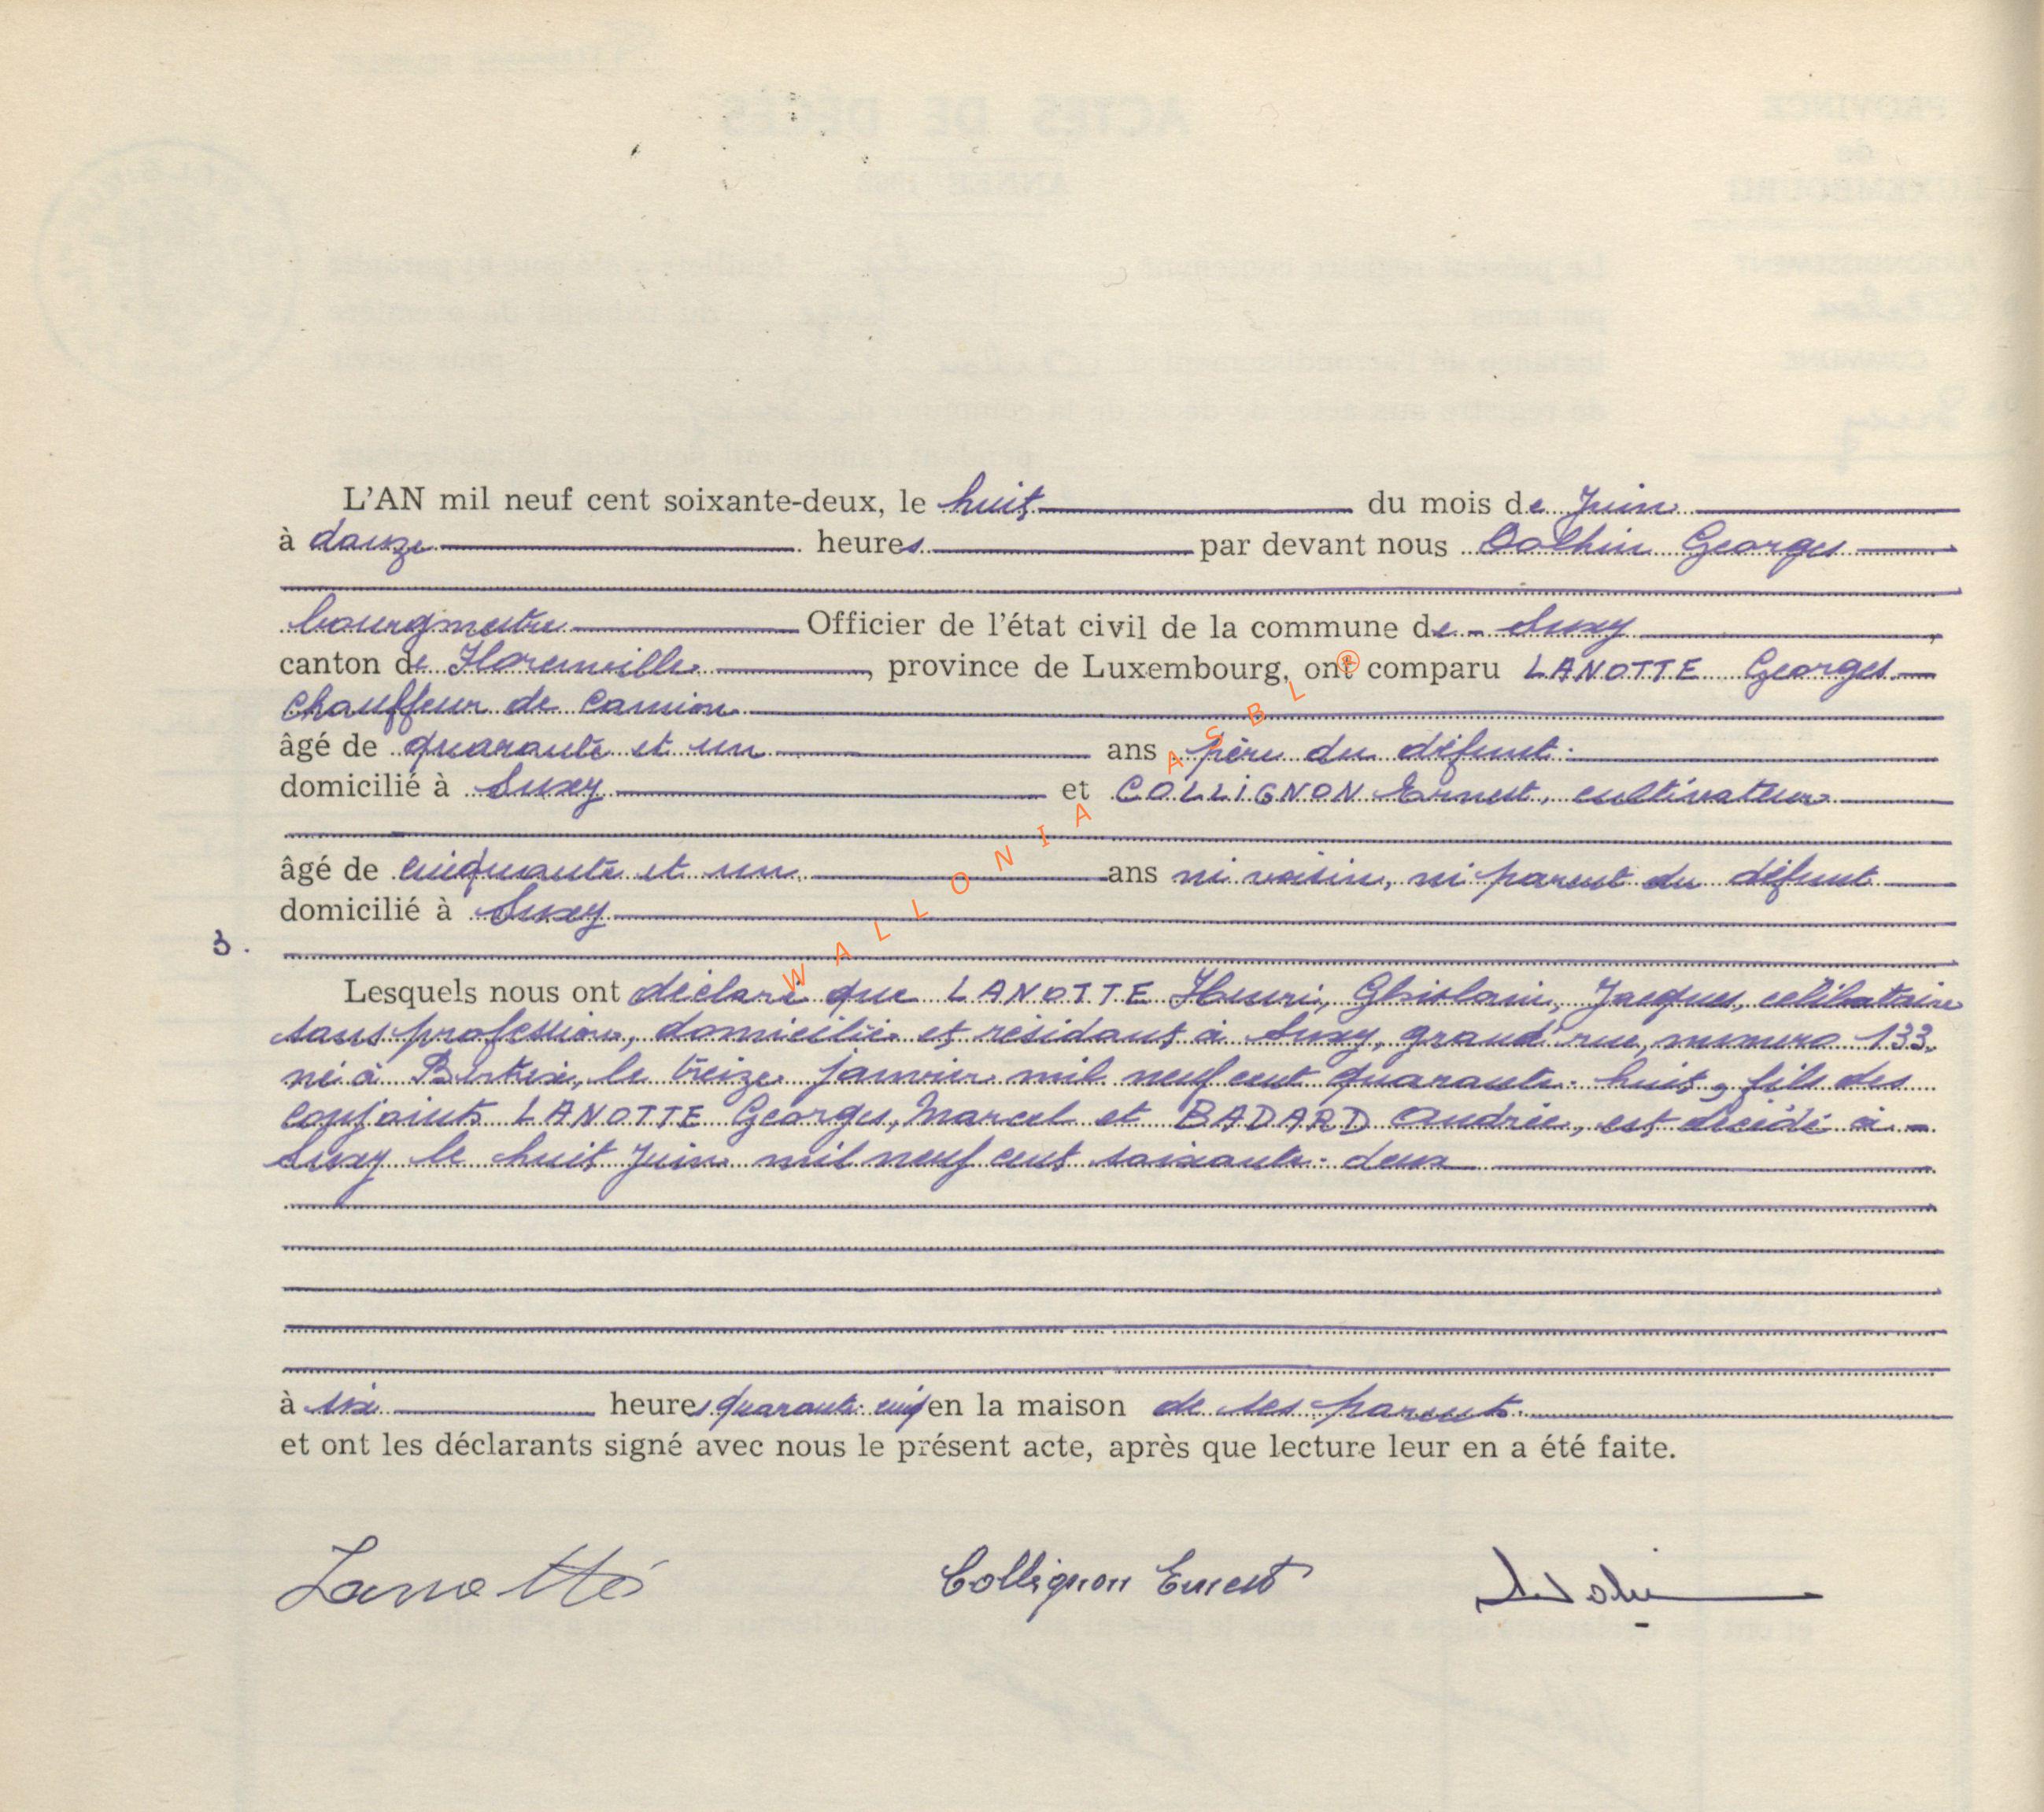 L'AN mil neuf cent soixante-deux, le huit du mois de Juin
à douze heures par devant nous Georges
bourgmestre Officier de l'état civil de la commune de Suxy,
canton de Florenville, province de Luxembourg, ont comparu LANOTTE Georges
chauffeur de camion
âgé de quarante et un ans père du défunt
domicilié à Suxy et COLLIGNON Ernest, cultivateur
âgé de cinquante et un ans ni voisin, ni parent du défunt
domicilié à Suxy
3.
Lesquels nous ont déclaré que LANOTTE Henri, Ghislain, Jacques, célibataire
sans profession, domicilié et résidant à Suxy, grand'rue, numero 133.
né à Bertrix, le treize janvier mil neuf cent quarante-huit, fils des
conjoints LANOTTE Georges, Marcel et BADARD Andrée, est décédé à
Suxy le huit Juin mil neuf cent soixante-deux
à six heures quarante-cinq en la maison de ses parents.
et ont les déclarants signé avec nous le présent acte, après que lecture leur en a été faite.
Lanotte Collignon Ernest
WALLONIA ASBL ®